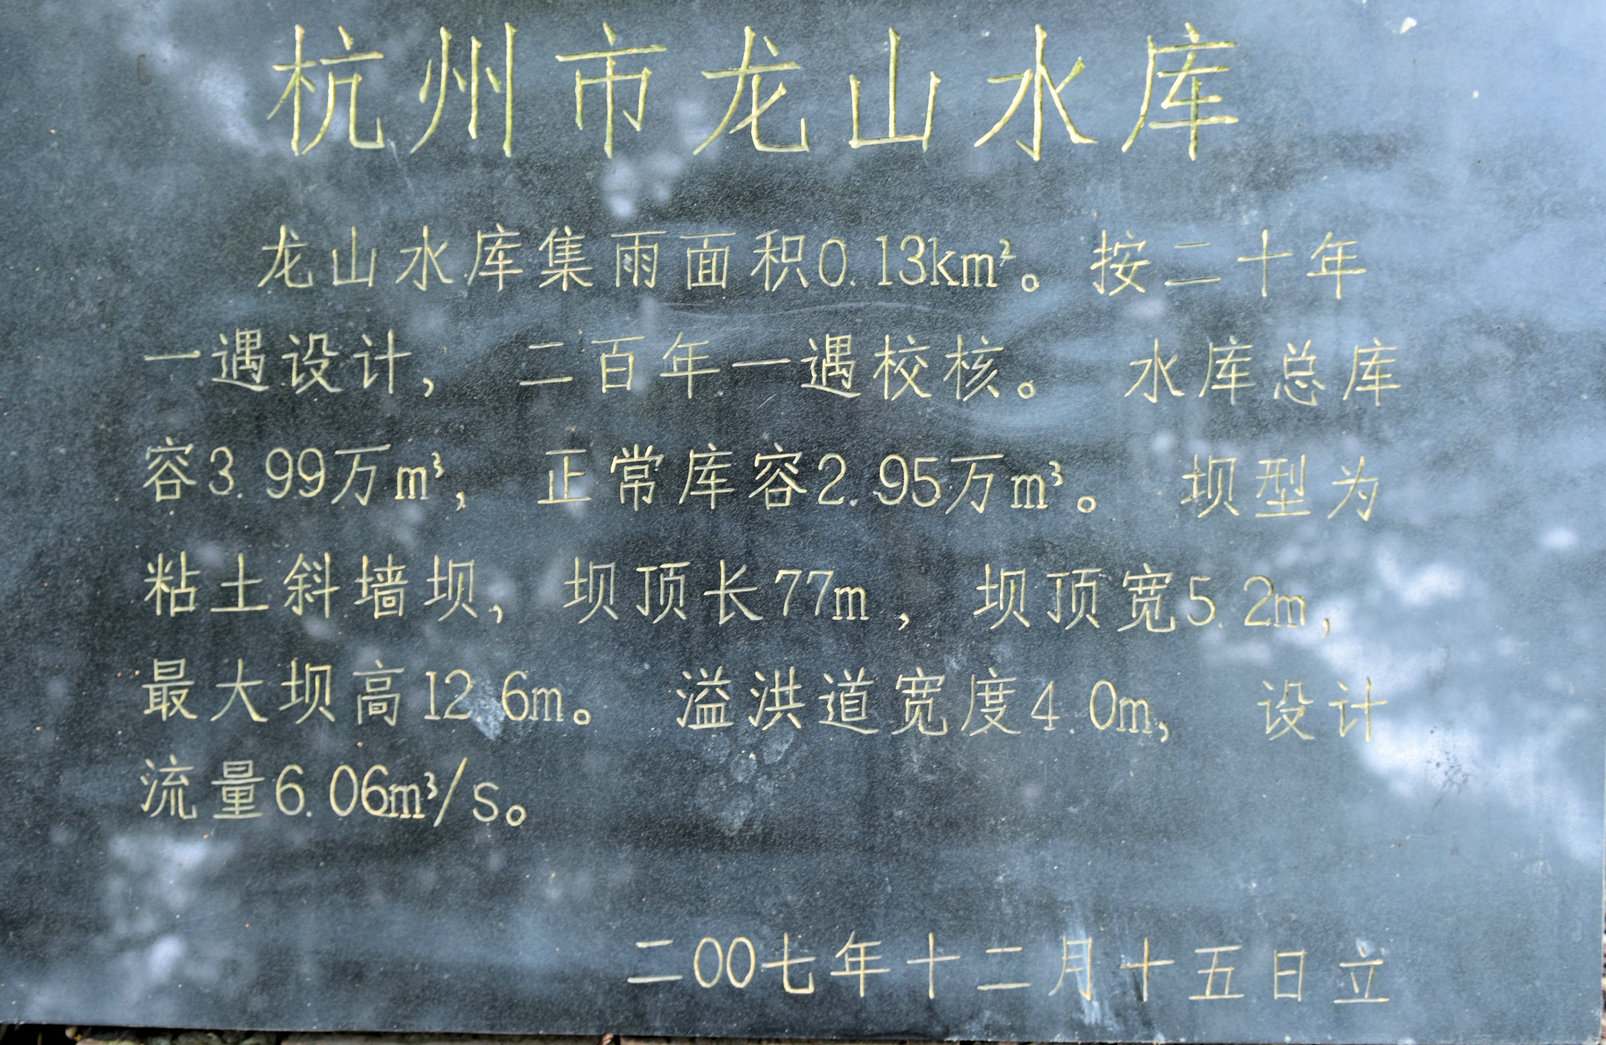 杭州市龙山水库
龙山水库集雨面积0.13km²。按二十年
一遇设计，二百年一遇校核。水库总库
容3.99万m³，正常库容2.95万m³。坝型为
粘土斜墙坝，坝顶长77m，坝顶宽5.2m，
最大坝高12.6m。溢洪道宽度4.0m，设计
流量6.06m³/s。
二00七年十二月十五日立